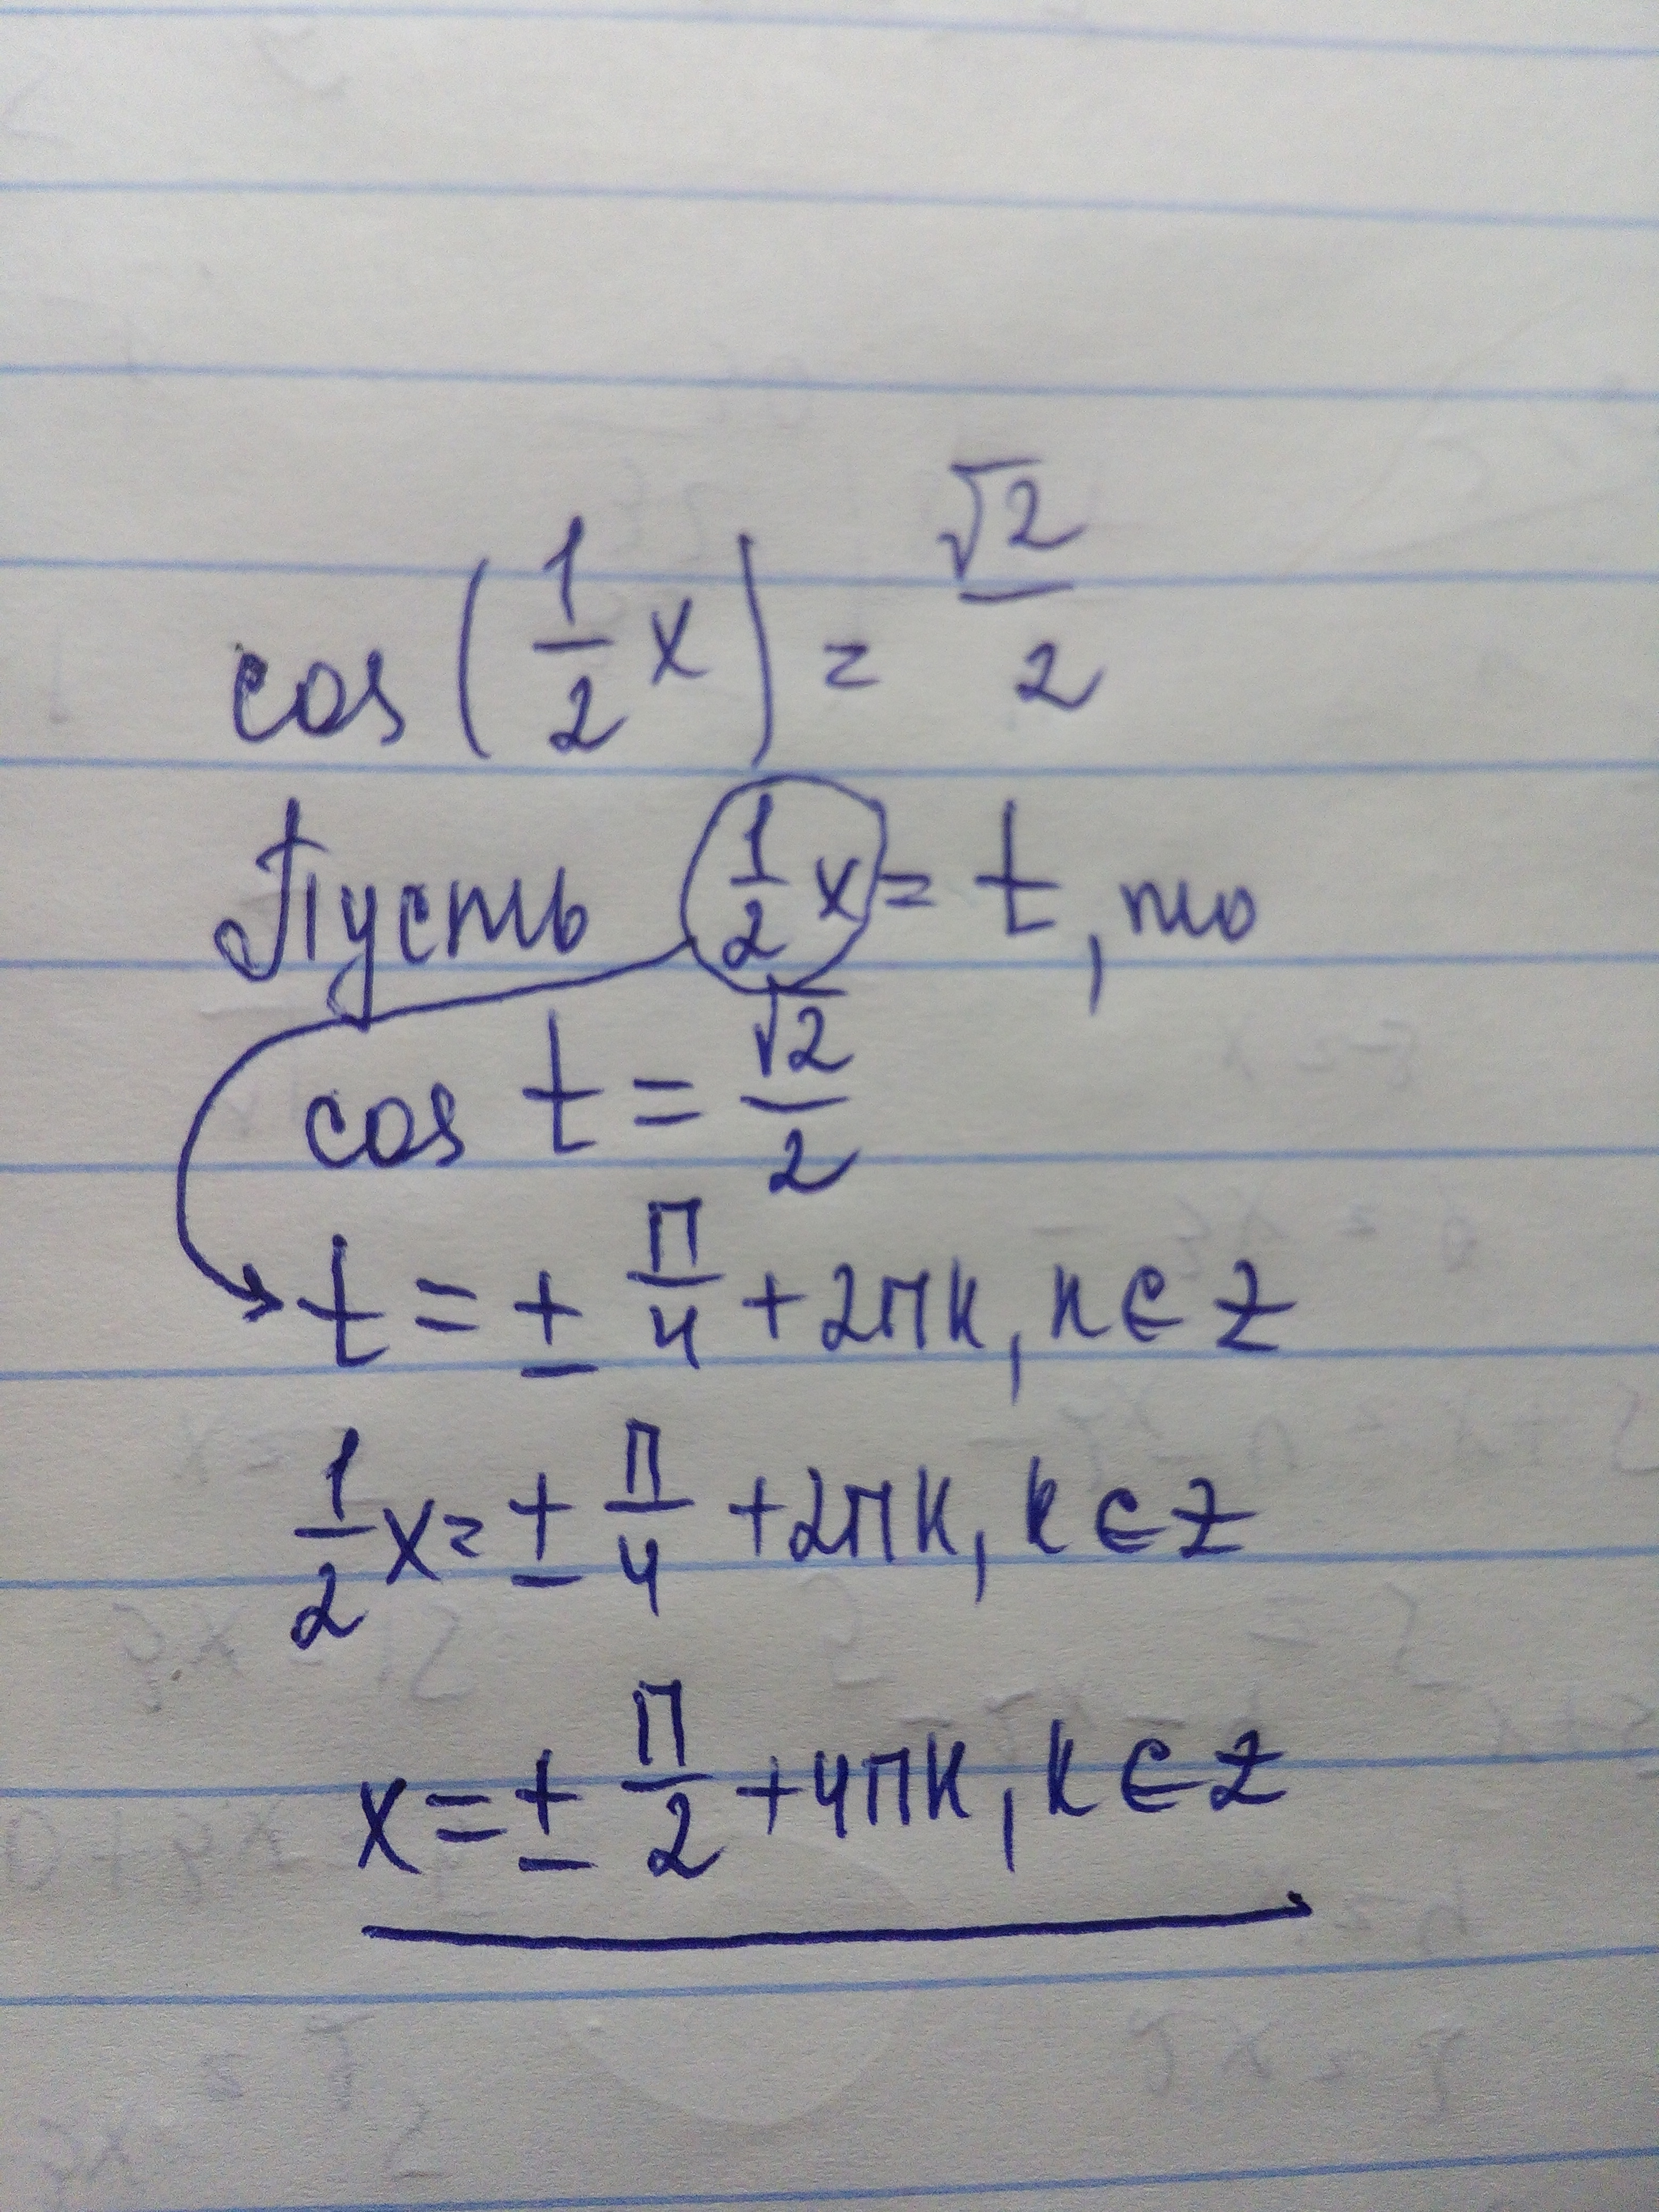 cos(1/2 x) = √2/2
Пусть 1/2 x = t, то
cos t = √2/2
t = ± π/4 + 2πk, k ∈ Z
1/2 x = ± π/4 + 2πk, k ∈ Z
x = ± π/2 + 4πk, k ∈ Z